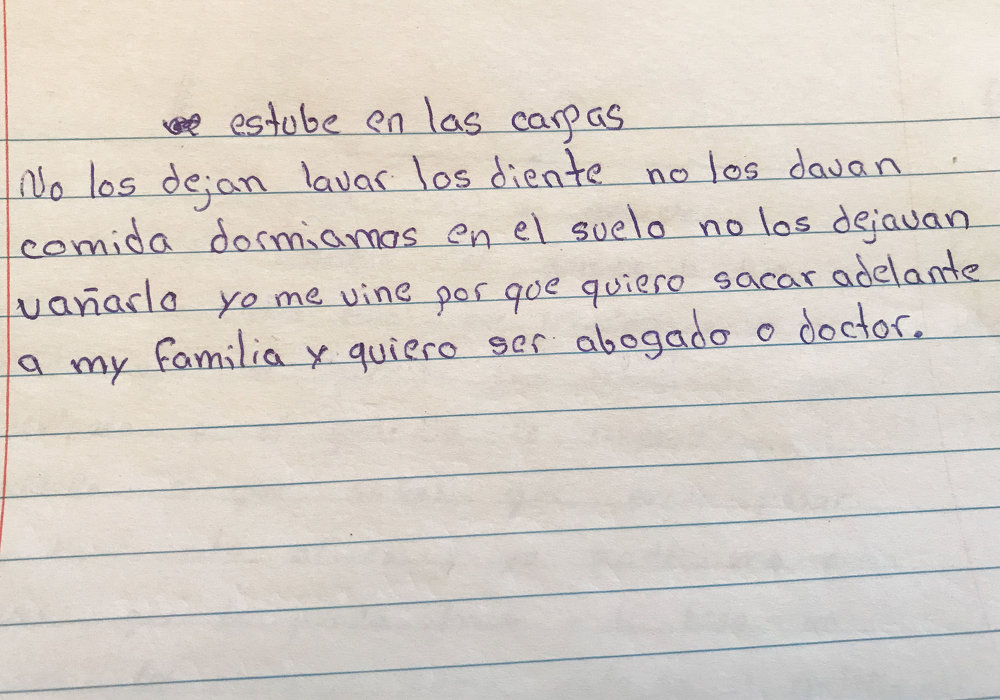 estube en las carpas
No los dejan lavar los diente no los davan
comida dormiamos en el suelo no los dejavan
vañarlo yo me vine por que quiero sacar adelante
a my familia y quiero ser abogado o doctor.